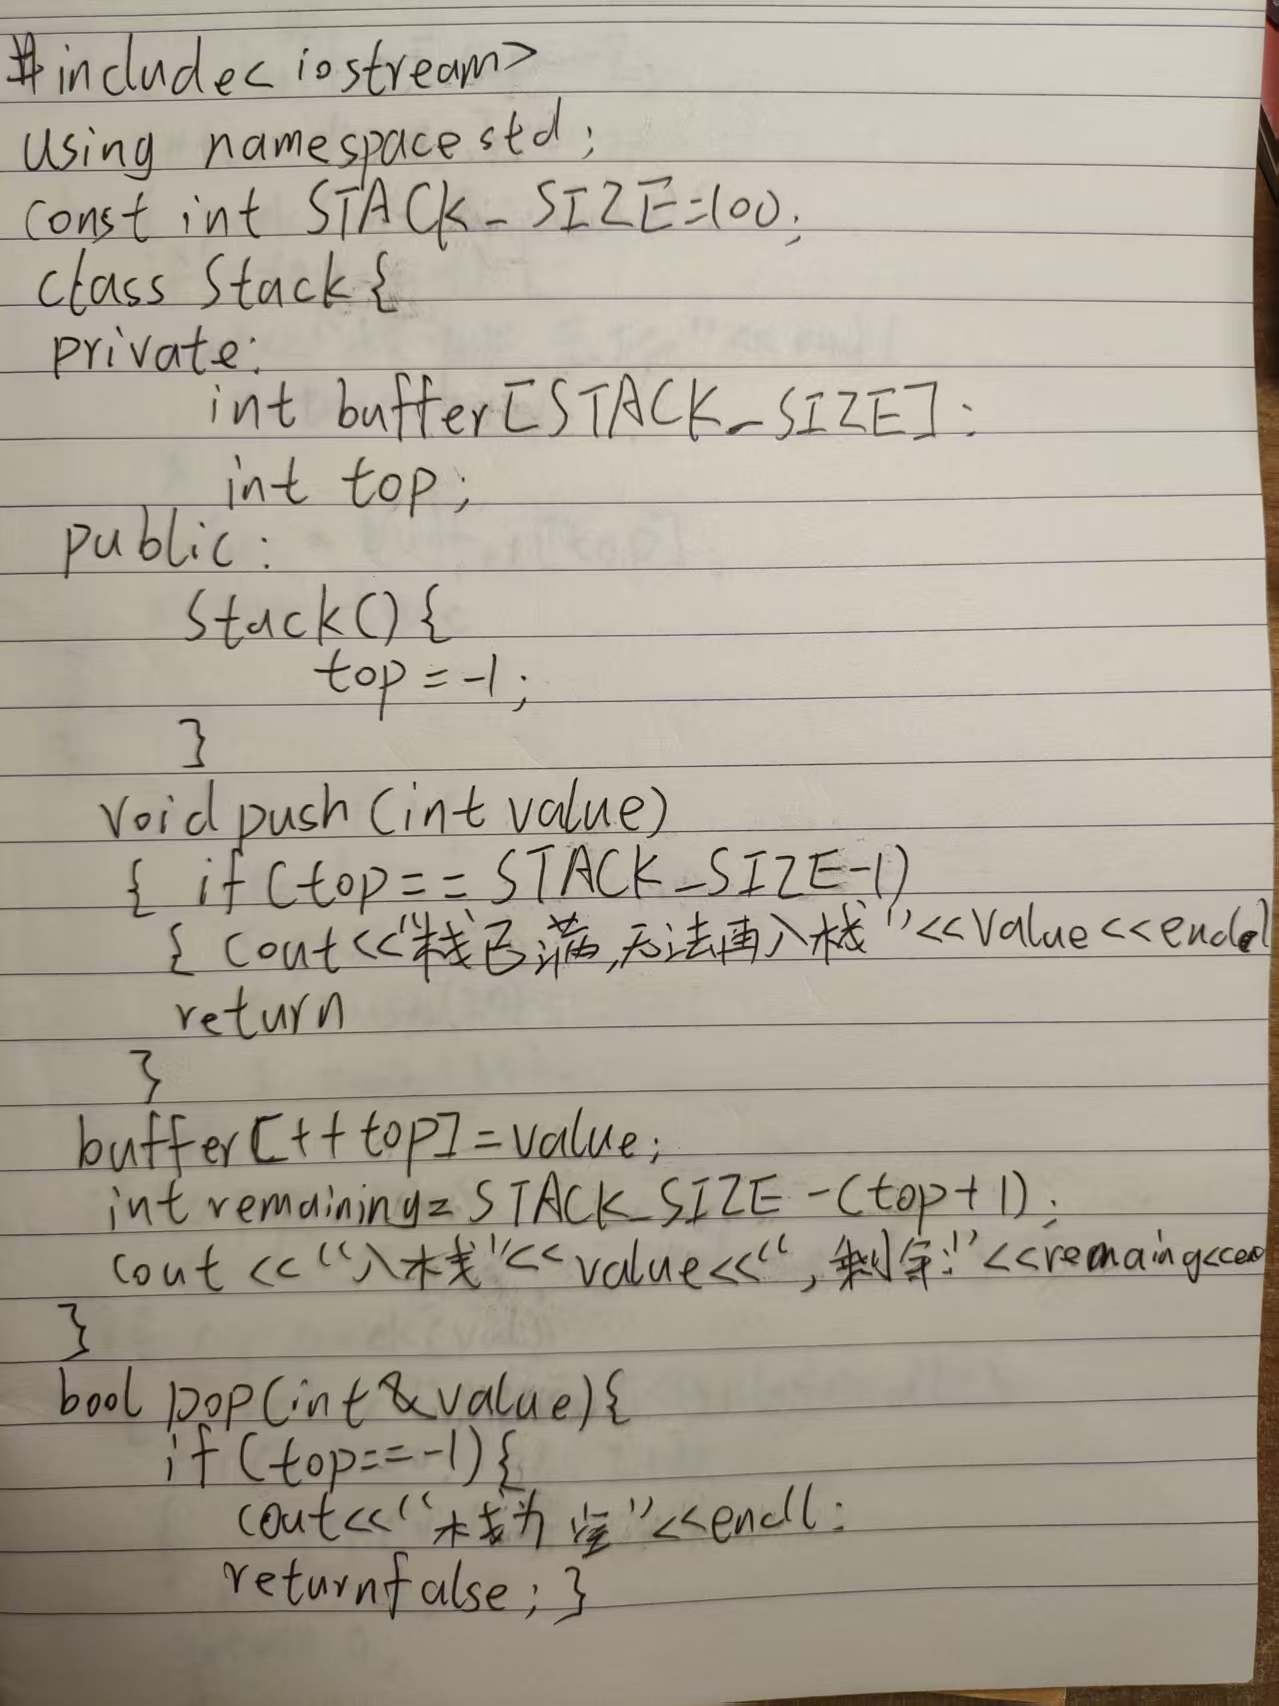 #include< iostream>
using namespace std;
const int STACK_SIZE=100;
class Stack{
private:
int buffer[STACK_SIZE];
int top;
public:
Stack(){
top=-1;
}
void push(int value)
{ if(top==STACK_SIZE-1)
{ cout<<"栈已满,无法再入栈"<<value<<endl
return
}
buffer[++top]=value;
int remaining=STACK_SIZE-(top+1);
cout<<"入栈"<<value<<",剩余:"<<remaing<<en
}
bool pop(int &value){
if(top==-1){
cout<<"栈为空"<<endl;
return false; }